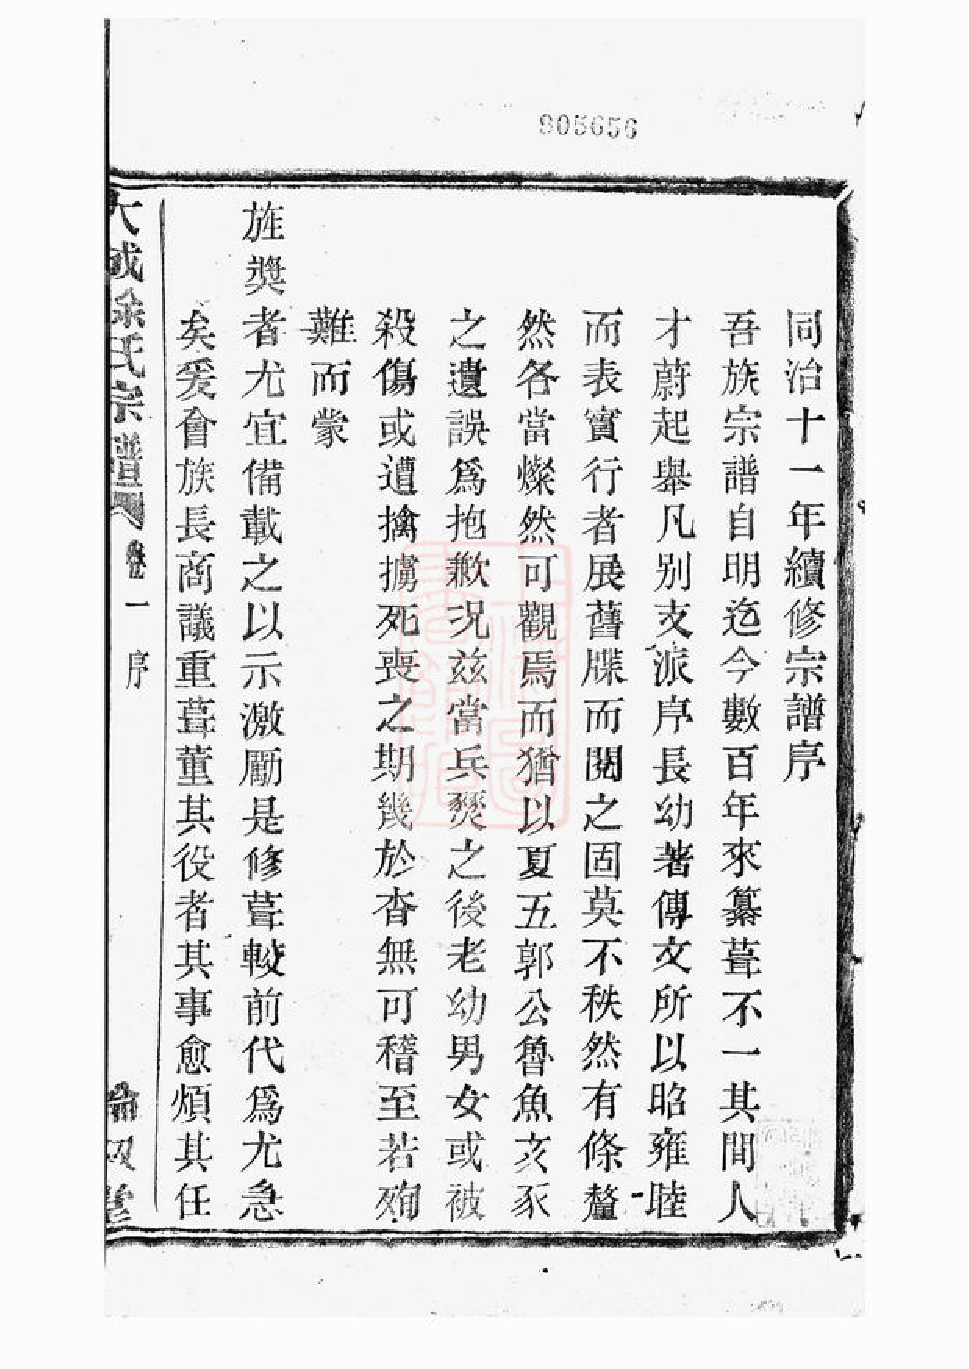 905656
同治十一年續修宗譜序
吾族宗譜自明迄今數百年來纂葺不一其間人
才蔚起舉凡別支派序長幼著傳文所以昭雍睦
而表實行者展舊牒而閱之固莫不秩然有條釐
然各當燦然可觀焉而猶以夏五郭公魯魚亥豕
之遺誤爲抱歉况兹當兵燹之後老幼男女或被
殺傷或遭擒擄死喪之期幾於杳無可稽至若殉
難而蒙
旌奬者尤宜備載之以示激勵是修葺較前代爲尤急
矣爰會族長商議重葺董其役者其事愈煩其任
大成徐氏宗譜 卷一 序 倫叙堂